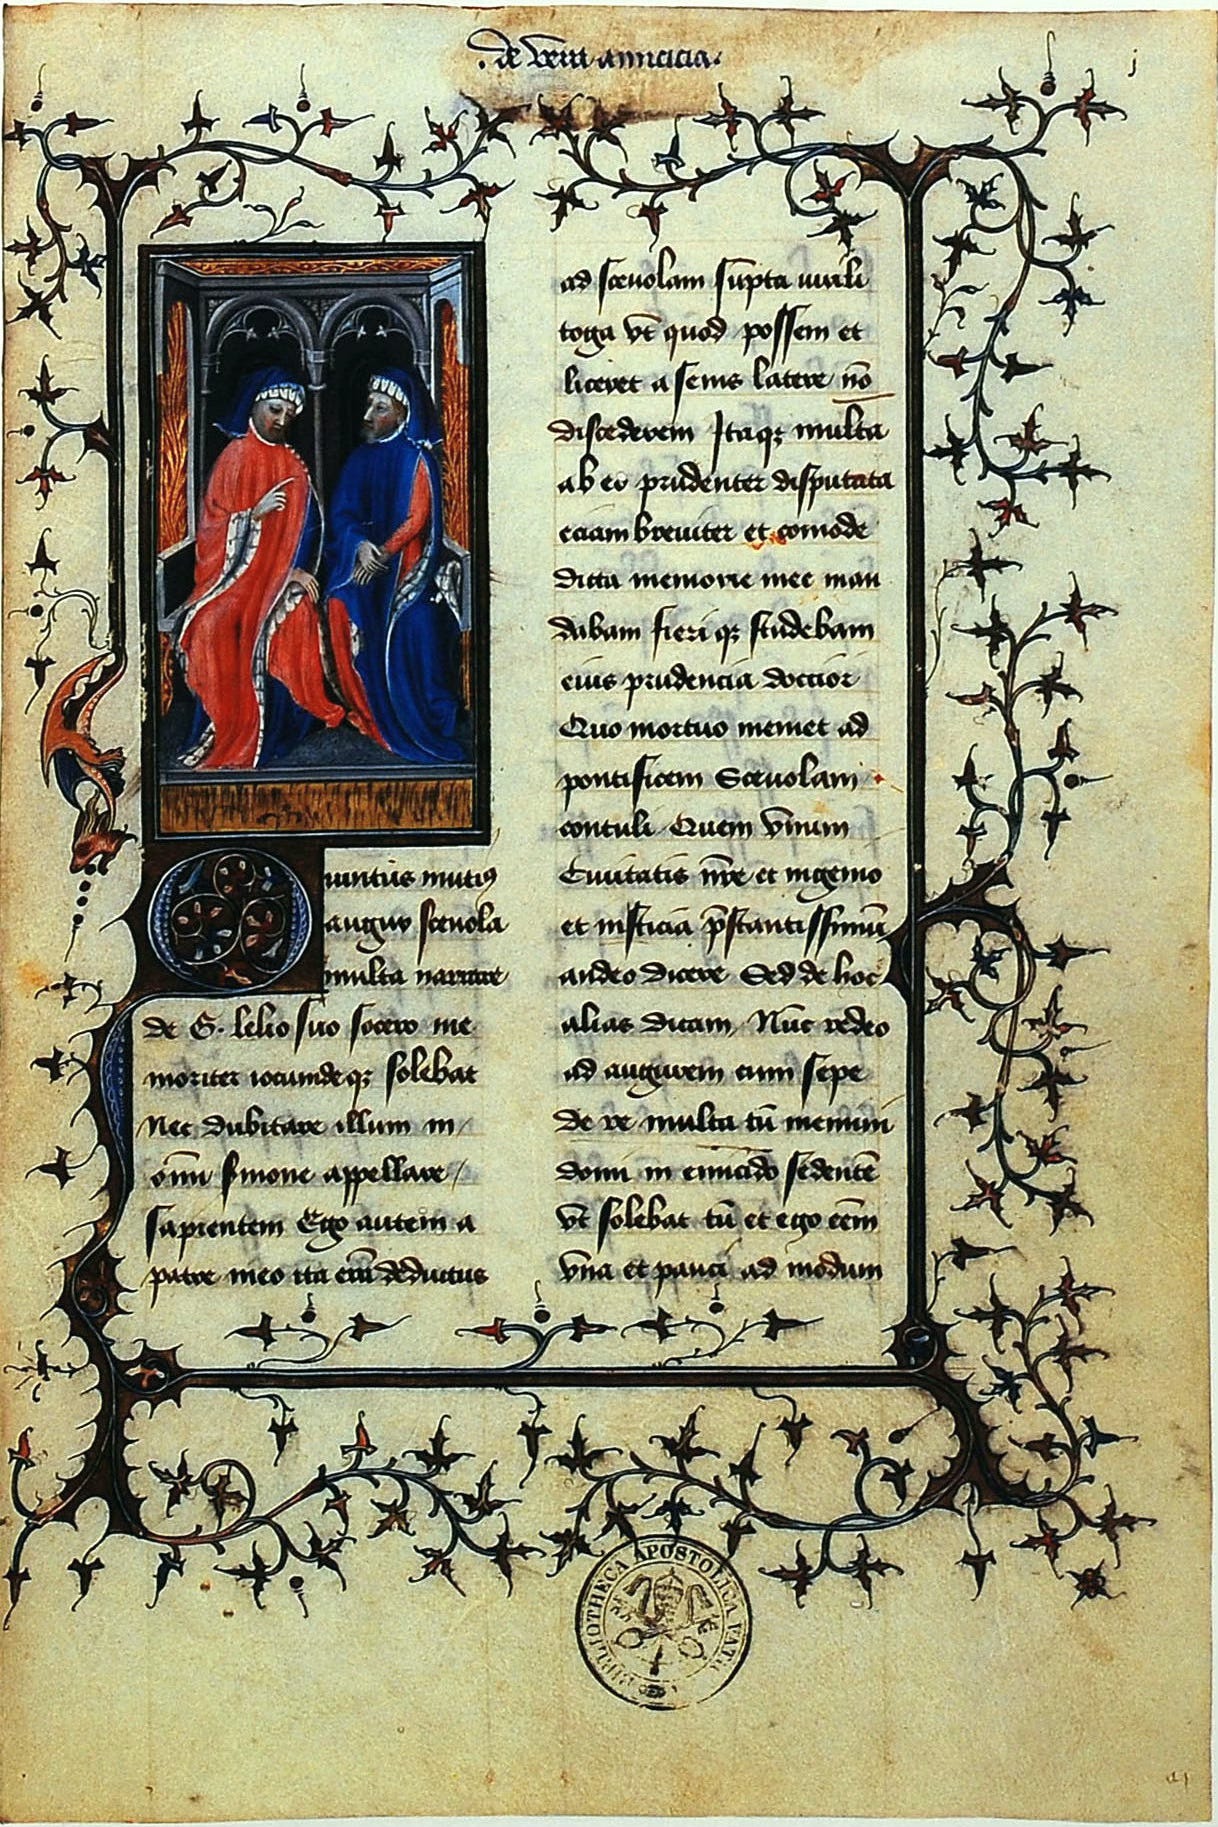 . de vera amicicia.
j
Quintus mutius
augur scevola
multa narrare
de G. lelio suo socero me
moriter iocundeqꝫ solebat
Nec dubitare illum in
om̄i s̄mone appellare
sapientem Ego autem a
patre meo ita erā deductus
ad scevolam sūpta virili
toga vt quod possem et
liceret a senis latere nō
discederem Itaqꝫ multa
ab eo prudenter disputata
eciam breviter et cōmode
dicta memorie mee man
dabam fieri qꝫ studebam
eius prudencia doctior
Quo mortuo memet ad
pontificem Scevolam
contuli Quem vnum
Civitatis nr̄e et ingenio
et iusticia p̄stantissimū
audeo dicere Sed de hoc
alias dicam Nūc redeo
ad augurem cum sepe
de re multa tū memini
domi in emiciclo sedentē
vt solebat cū et ego eēm
vna et pauci ad modum
BIBLIOTHECA APOSTOLICA VATI